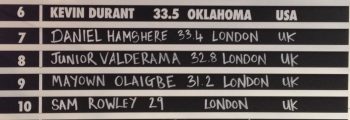 6 KEVIN DURANT 33.5 OKLAHOMA USA
7 DANIEL HAMSHERE 33.4 LONDON UK
8 JUNIOR VALDERAMA 32.8 LONDON UK
9 MAYOWN OLAIGBE 31.2 LONDON UK
10 SAM ROWLEY 29 LONDON UK